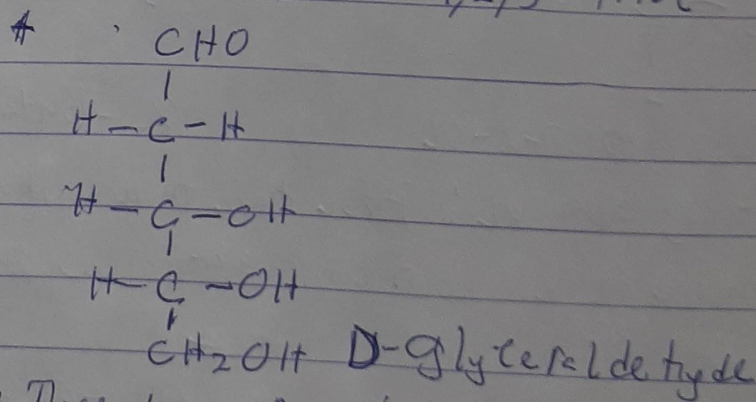 CHO
|
H-C-H
|
H-C-OH
|
H-C-OH
|
CH2OH D-glyceraldehyde